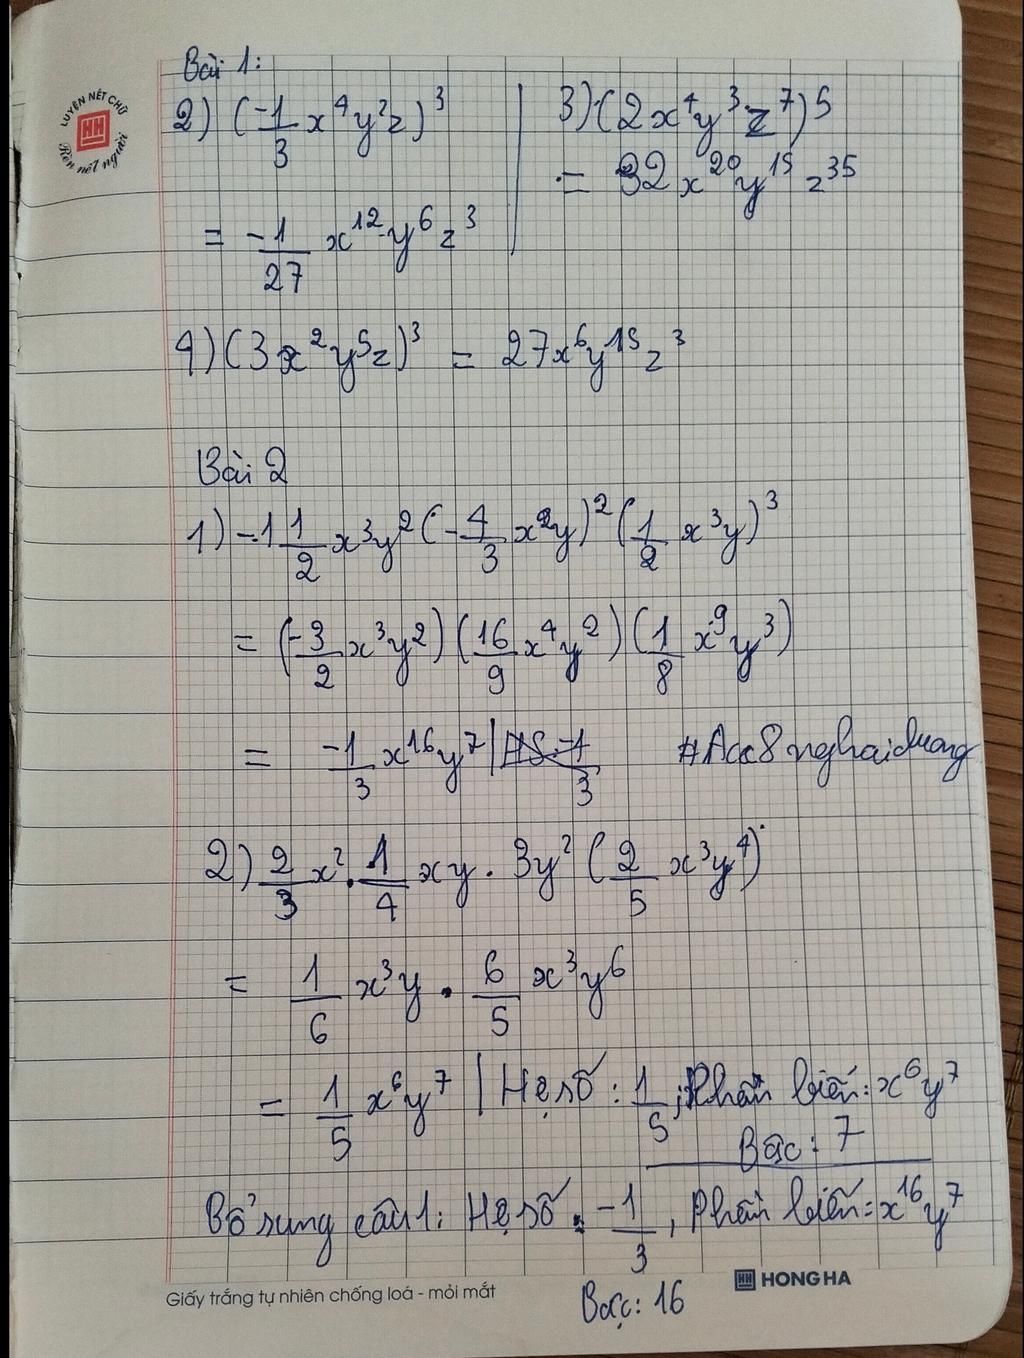 Bài 1:
LUYỆN NÉT CHỮ
HH
Rèn nết người
2) (-1/3 x⁴y²z)³
= -1/27 x¹²y⁶z³
3) (2x⁴y³z⁷)⁵
= 32x²⁰y¹⁵z³⁵
4) (3x²y⁵z)³ = 27x⁶y¹⁵z³
Bài 2
1) -1 1/2 x³y² (-4/3 x²y)² (1/2 x³y)³
= (-3/2 x³y²) (16/9 x⁴y²) (1/8 x⁹y³)
= -1/3 x¹⁶y⁷ | HS: -1/3 #Acc8nghaiduong
2) 2/3 x² . 1/4 xy . 3y² (2/5 x³y⁴)
= 1/6 x³y . 6/5 x³y⁶
= 1/5 x⁶y⁷ | Hệ số: 1/5; Phần biến: x⁶y⁷
Bậc: 7
Bổ sung câu 1: Hệ số: -1/3, Phần biến: x¹⁶y⁷
Bậc: 16
Giấy trắng tự nhiên chống loá - mỏi mắt
HH HONG HA